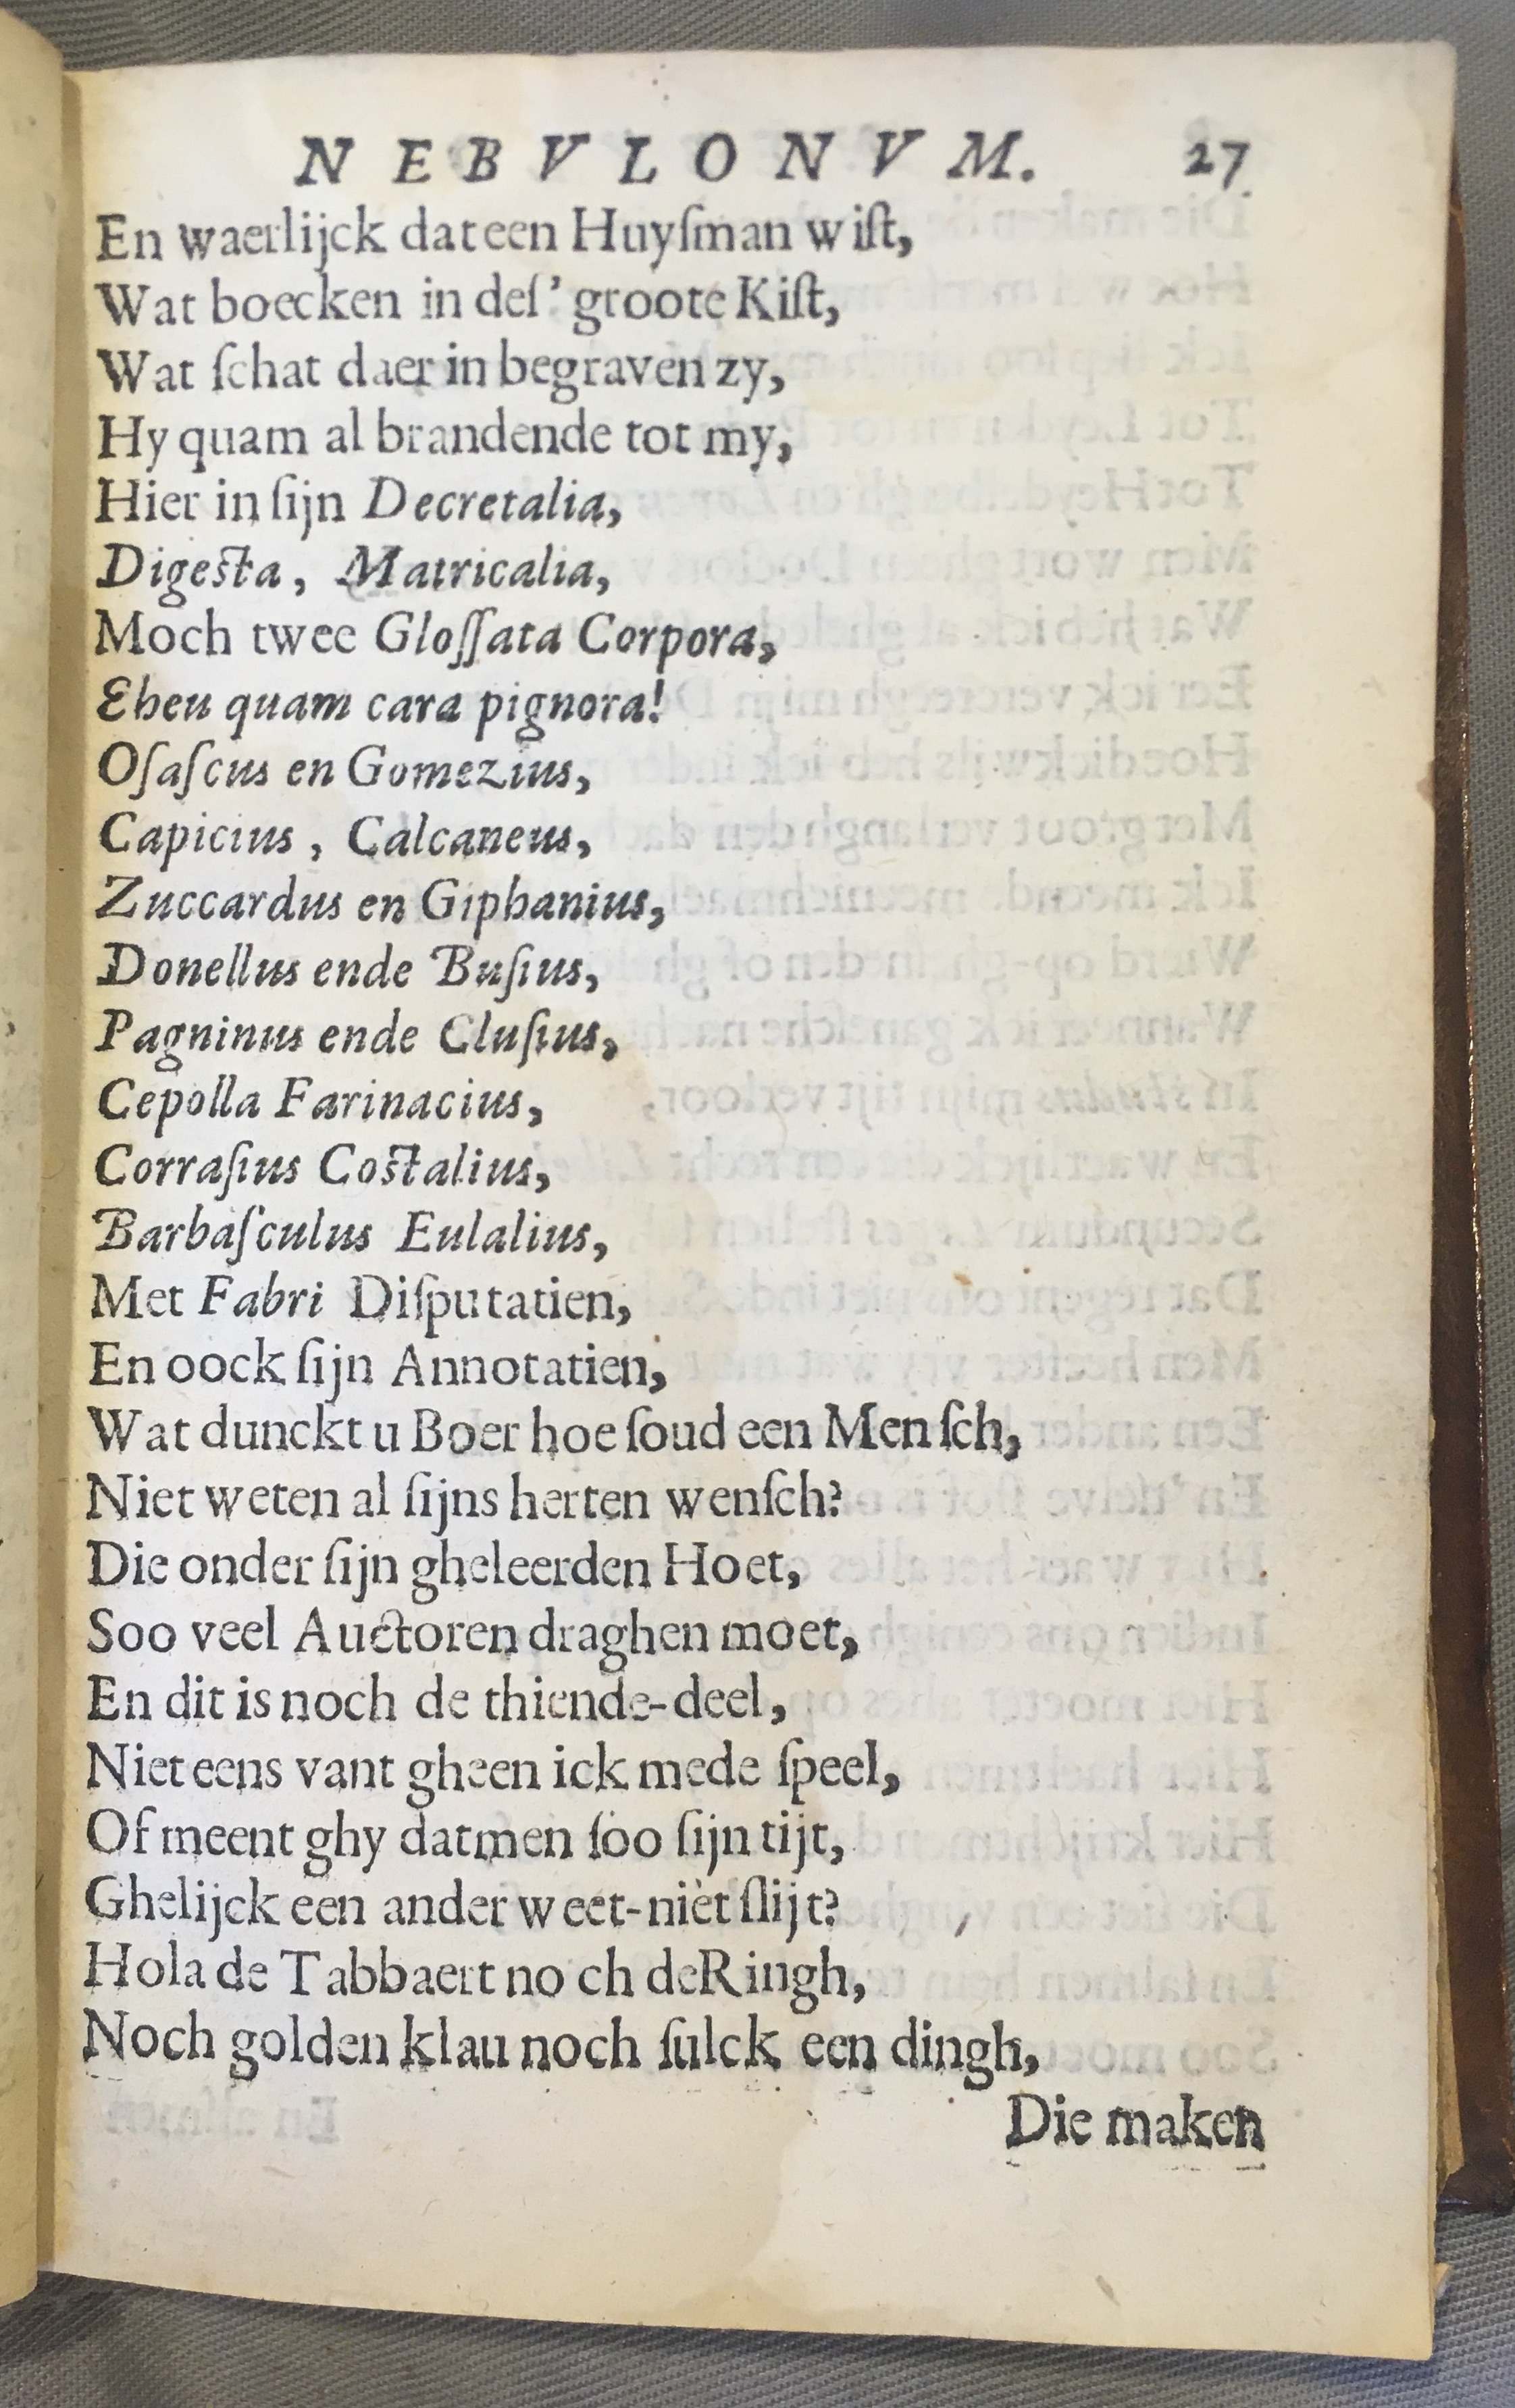 NEBVLONVM. 27
En waerlijck dat een Huyſman wiſt,
Wat boecken in deſ' groote Kiſt,
Wat ſchat daer in begraven zy,
Hy quam al brandende tot my,
Hier in ſijn Decretalia,
Digeſta, Matricalia,
Moch twee Gloſſata Corpora,
Eheu quam cara pignora!
Oſaſcus en Gomezius,
Capicius, Calcaneus,
Zuccardus en Giphanius,
Donellus ende Buſius,
Pagninus ende Cluſius,
Cepolla Farinacius,
Corraſius Coſtalius,
Barbaſculus Eulalius,
Met Fabri Diſputatien,
En oock ſijn Annotatien,
Wat dunckt u Boer hoe ſoud een Menſch,
Niet weten al ſijns herten wenſch?
Die onder ſijn gheleerden Hoet,
Soo veel Auctoren draghen moet,
En dit is noch de thiende-deel,
Niet eens vant gheen ick mede ſpeel,
Of meent ghy datmen ſoo ſijn tijt,
Ghelijck een ander weet-niet ſlijt?
Hola de Tabbaert noch de Ringh,
Noch golden klau noch ſulck een dingh,
Die maken